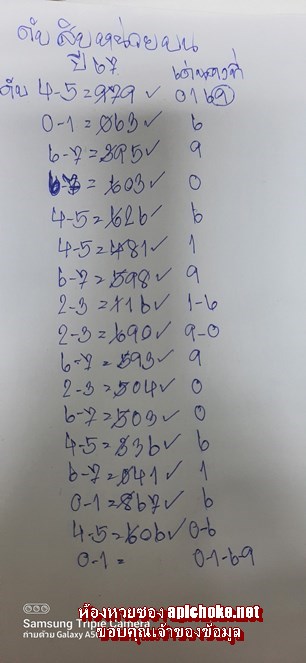 ดับ สิบหน่วยบน
ปี 67 เด่นคาที่
ดับ 4-5 = 979 ✓ 0169
0-1 = 063 ✓ 6
6-7 = 395 ✓ 9
= 603 ✓ 0
4-5 = 626 ✓ 6
4-5 = 481 ✓ 1
6-7 = 598 ✓ 9
2-3 = 116 ✓ 1-6
2-3 = 690 ✓ 9-0
6-7 = 593 ✓ 9
2-3 = 504 ✓ 0
6-7 = 503 ✓ 0
4-5 = 836 ✓ 6
6-7 = 041 ✓ 1
0-1 = 867 ✓ 6
4-5 = 606 ✓ 0-6
0-1 = 0-1-6-9
Samsung Triple Camera
ถ่ายด้วย Galaxy
ห้องหวยซอง apichoke.net
ขอบคุณเจ้าของข้อมูล